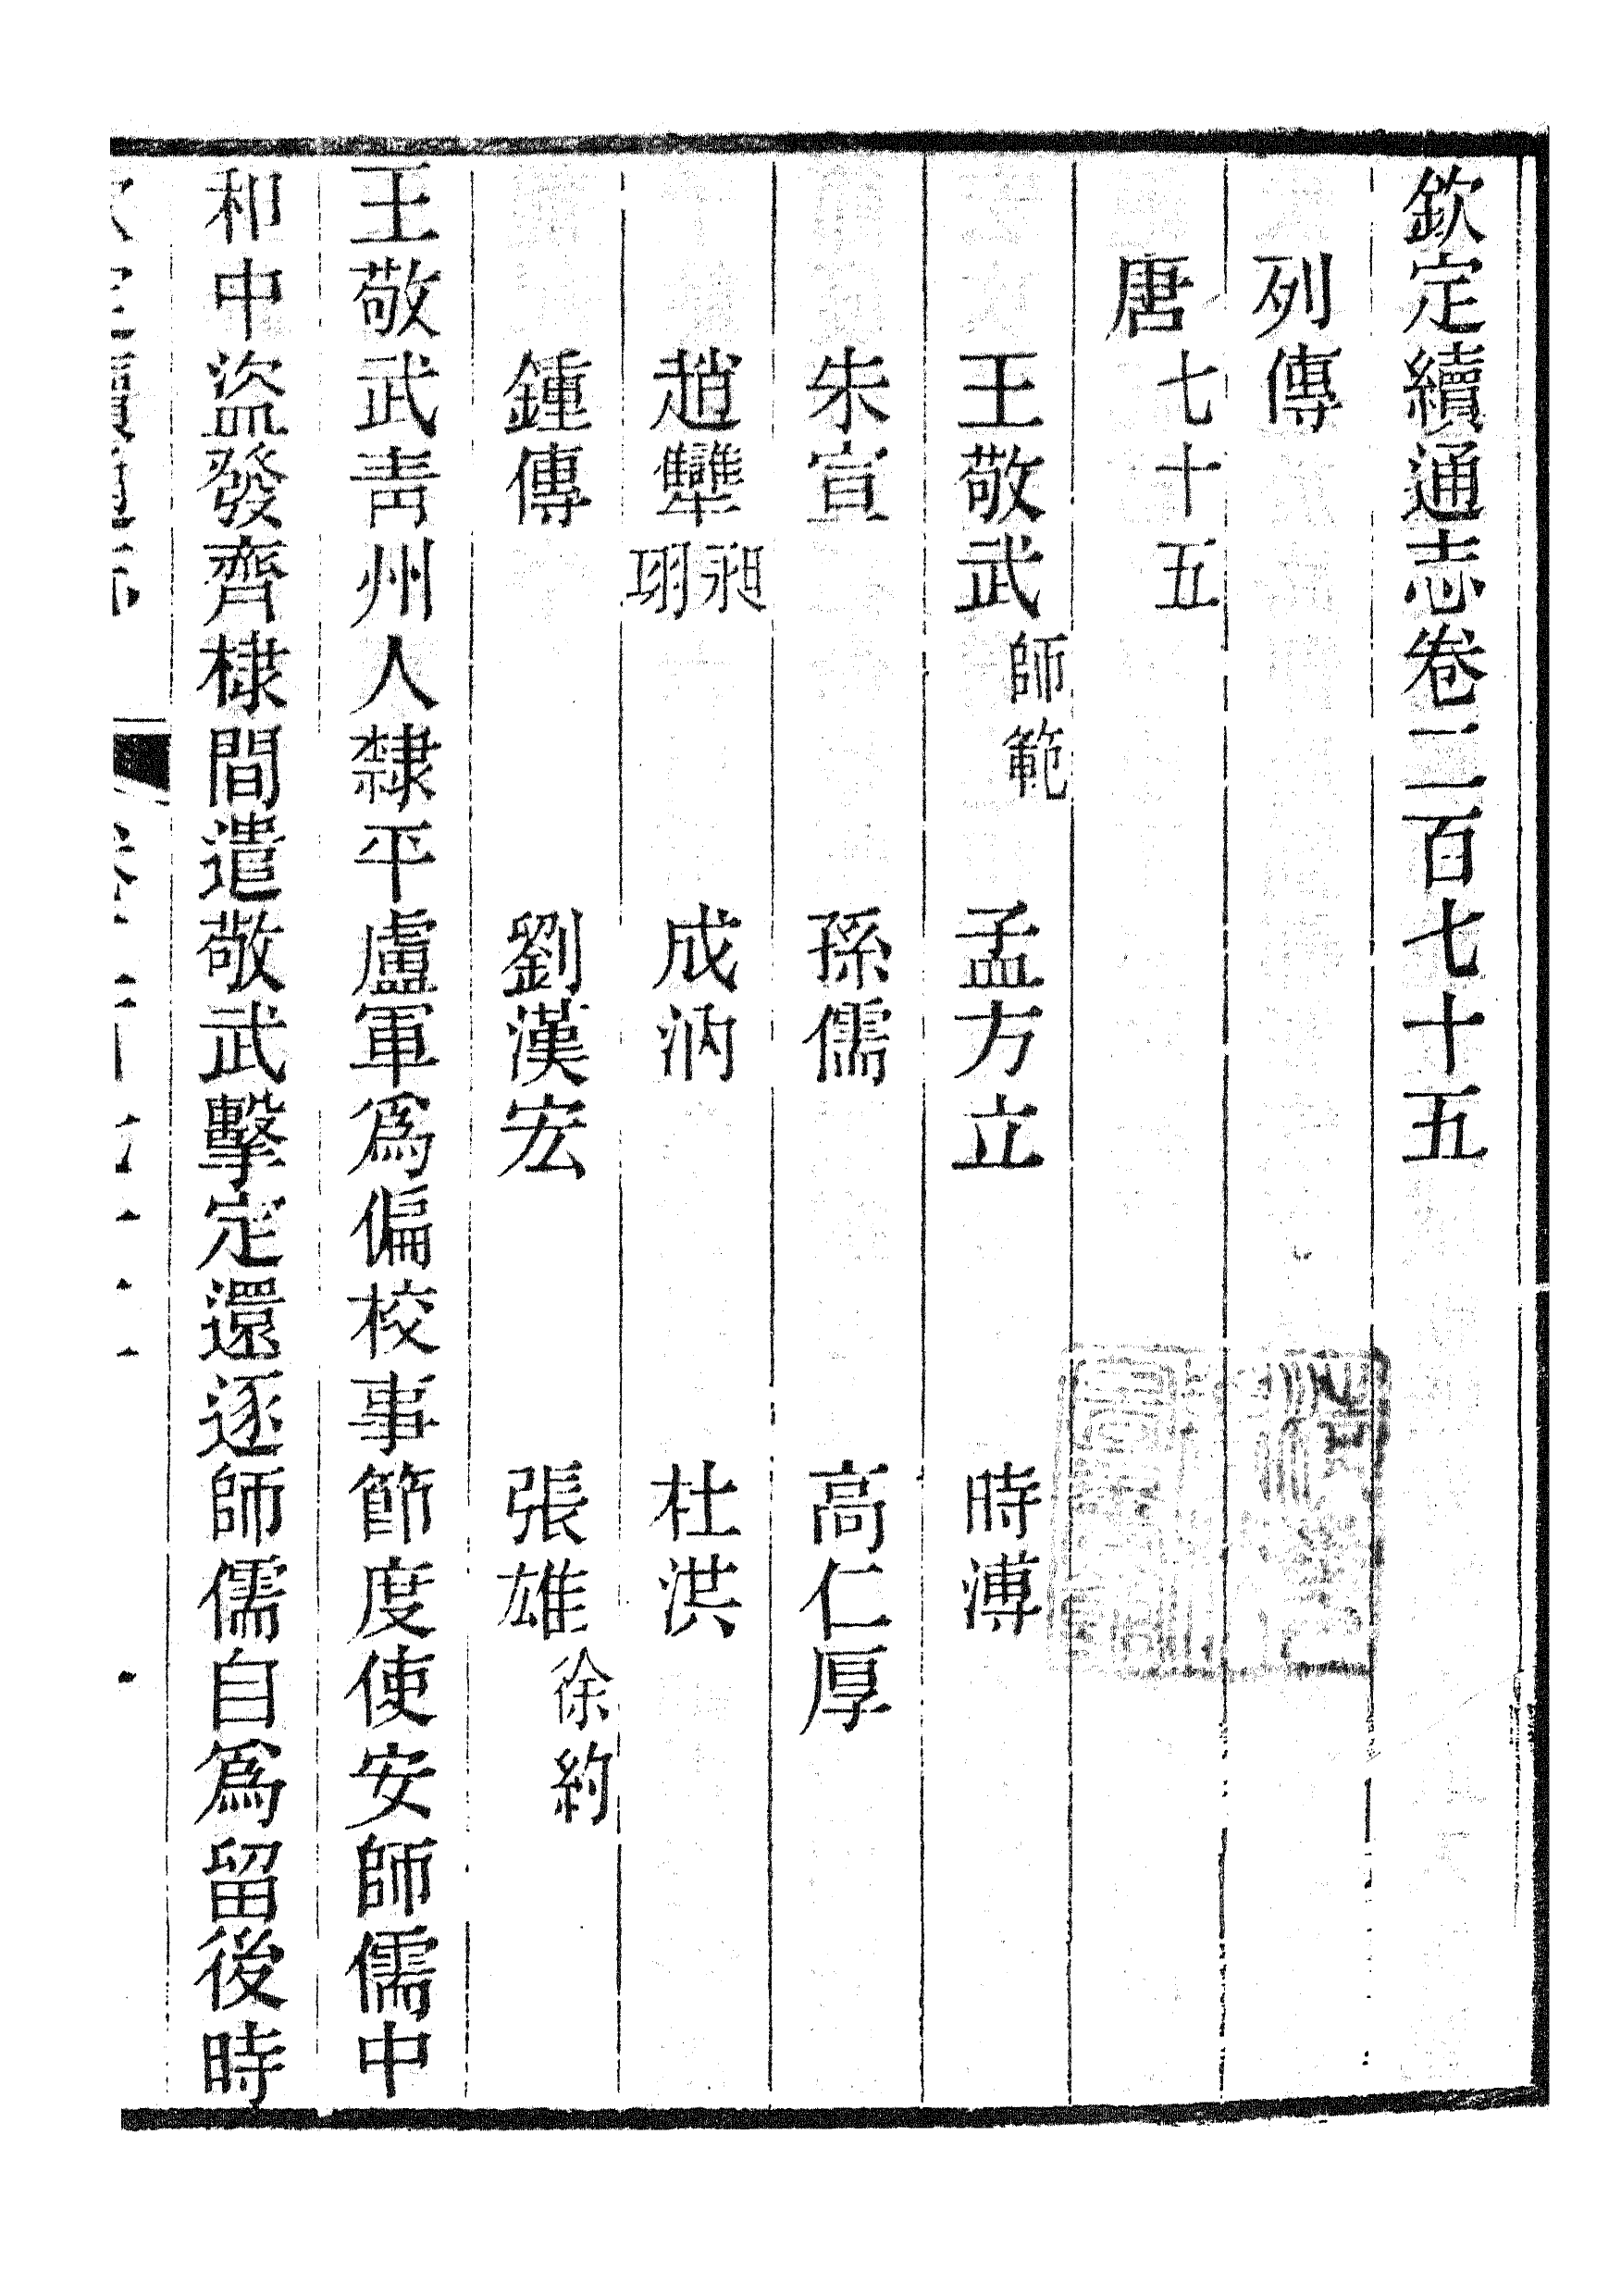 欽定續通志卷二百七十五
列傳
唐七十五
王敬武師範　孟方立　時溥
朱宣　孫儒　高仁厚
趙犨昶珝　成汭　杜洪
鍾傳　劉漢宏　張雄徐約
王敬武青州人隸平盧軍爲偏校事節度使安師儒中
和中盜發齊棣間遣敬武擊定還逐師儒自爲留後時